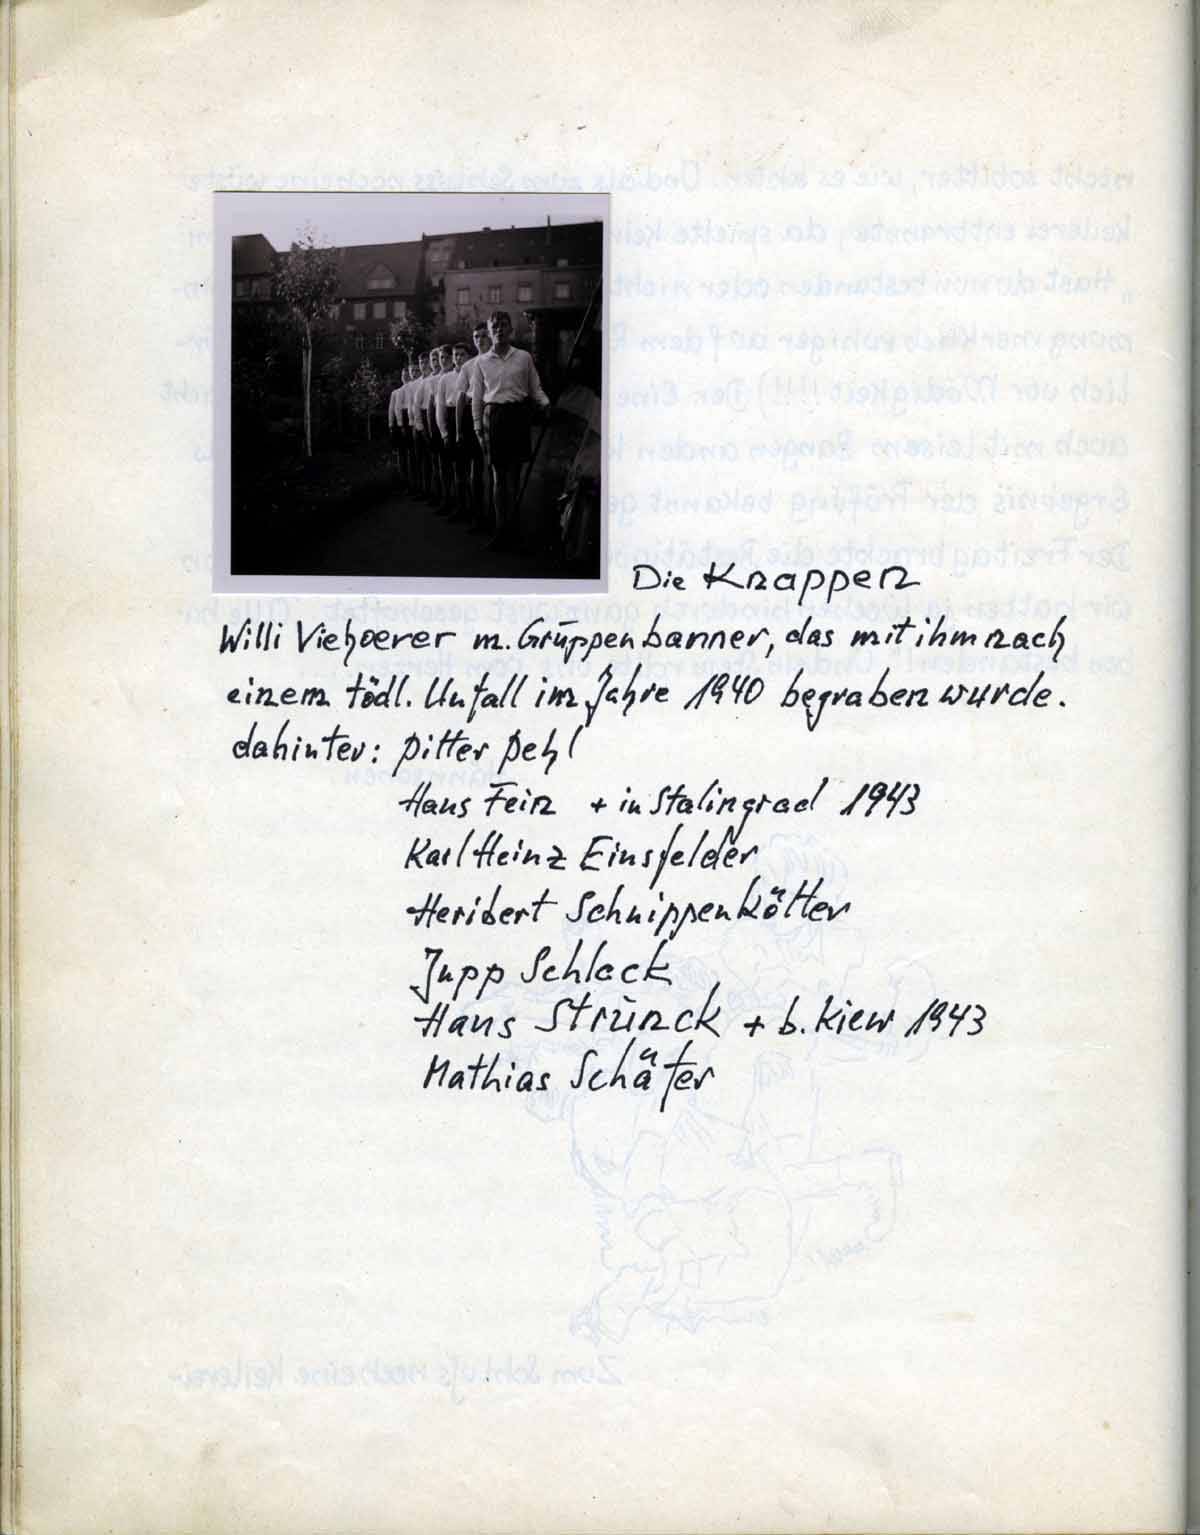 Die Knappen
Willi Viehoerer m. Gruppenbanner, das mit ihm nach
einem tödl. Unfall im Jahre 1940 begraben wurde.
dahinter: Pitter Pehl
Hans Fein + in Stalingrad 1943
Karl Heinz Einsfelder
Heribert Schnippenkötter
Jupp Schlack
Hans Strunck + b. Kiew 1943
Mathias Schäfer